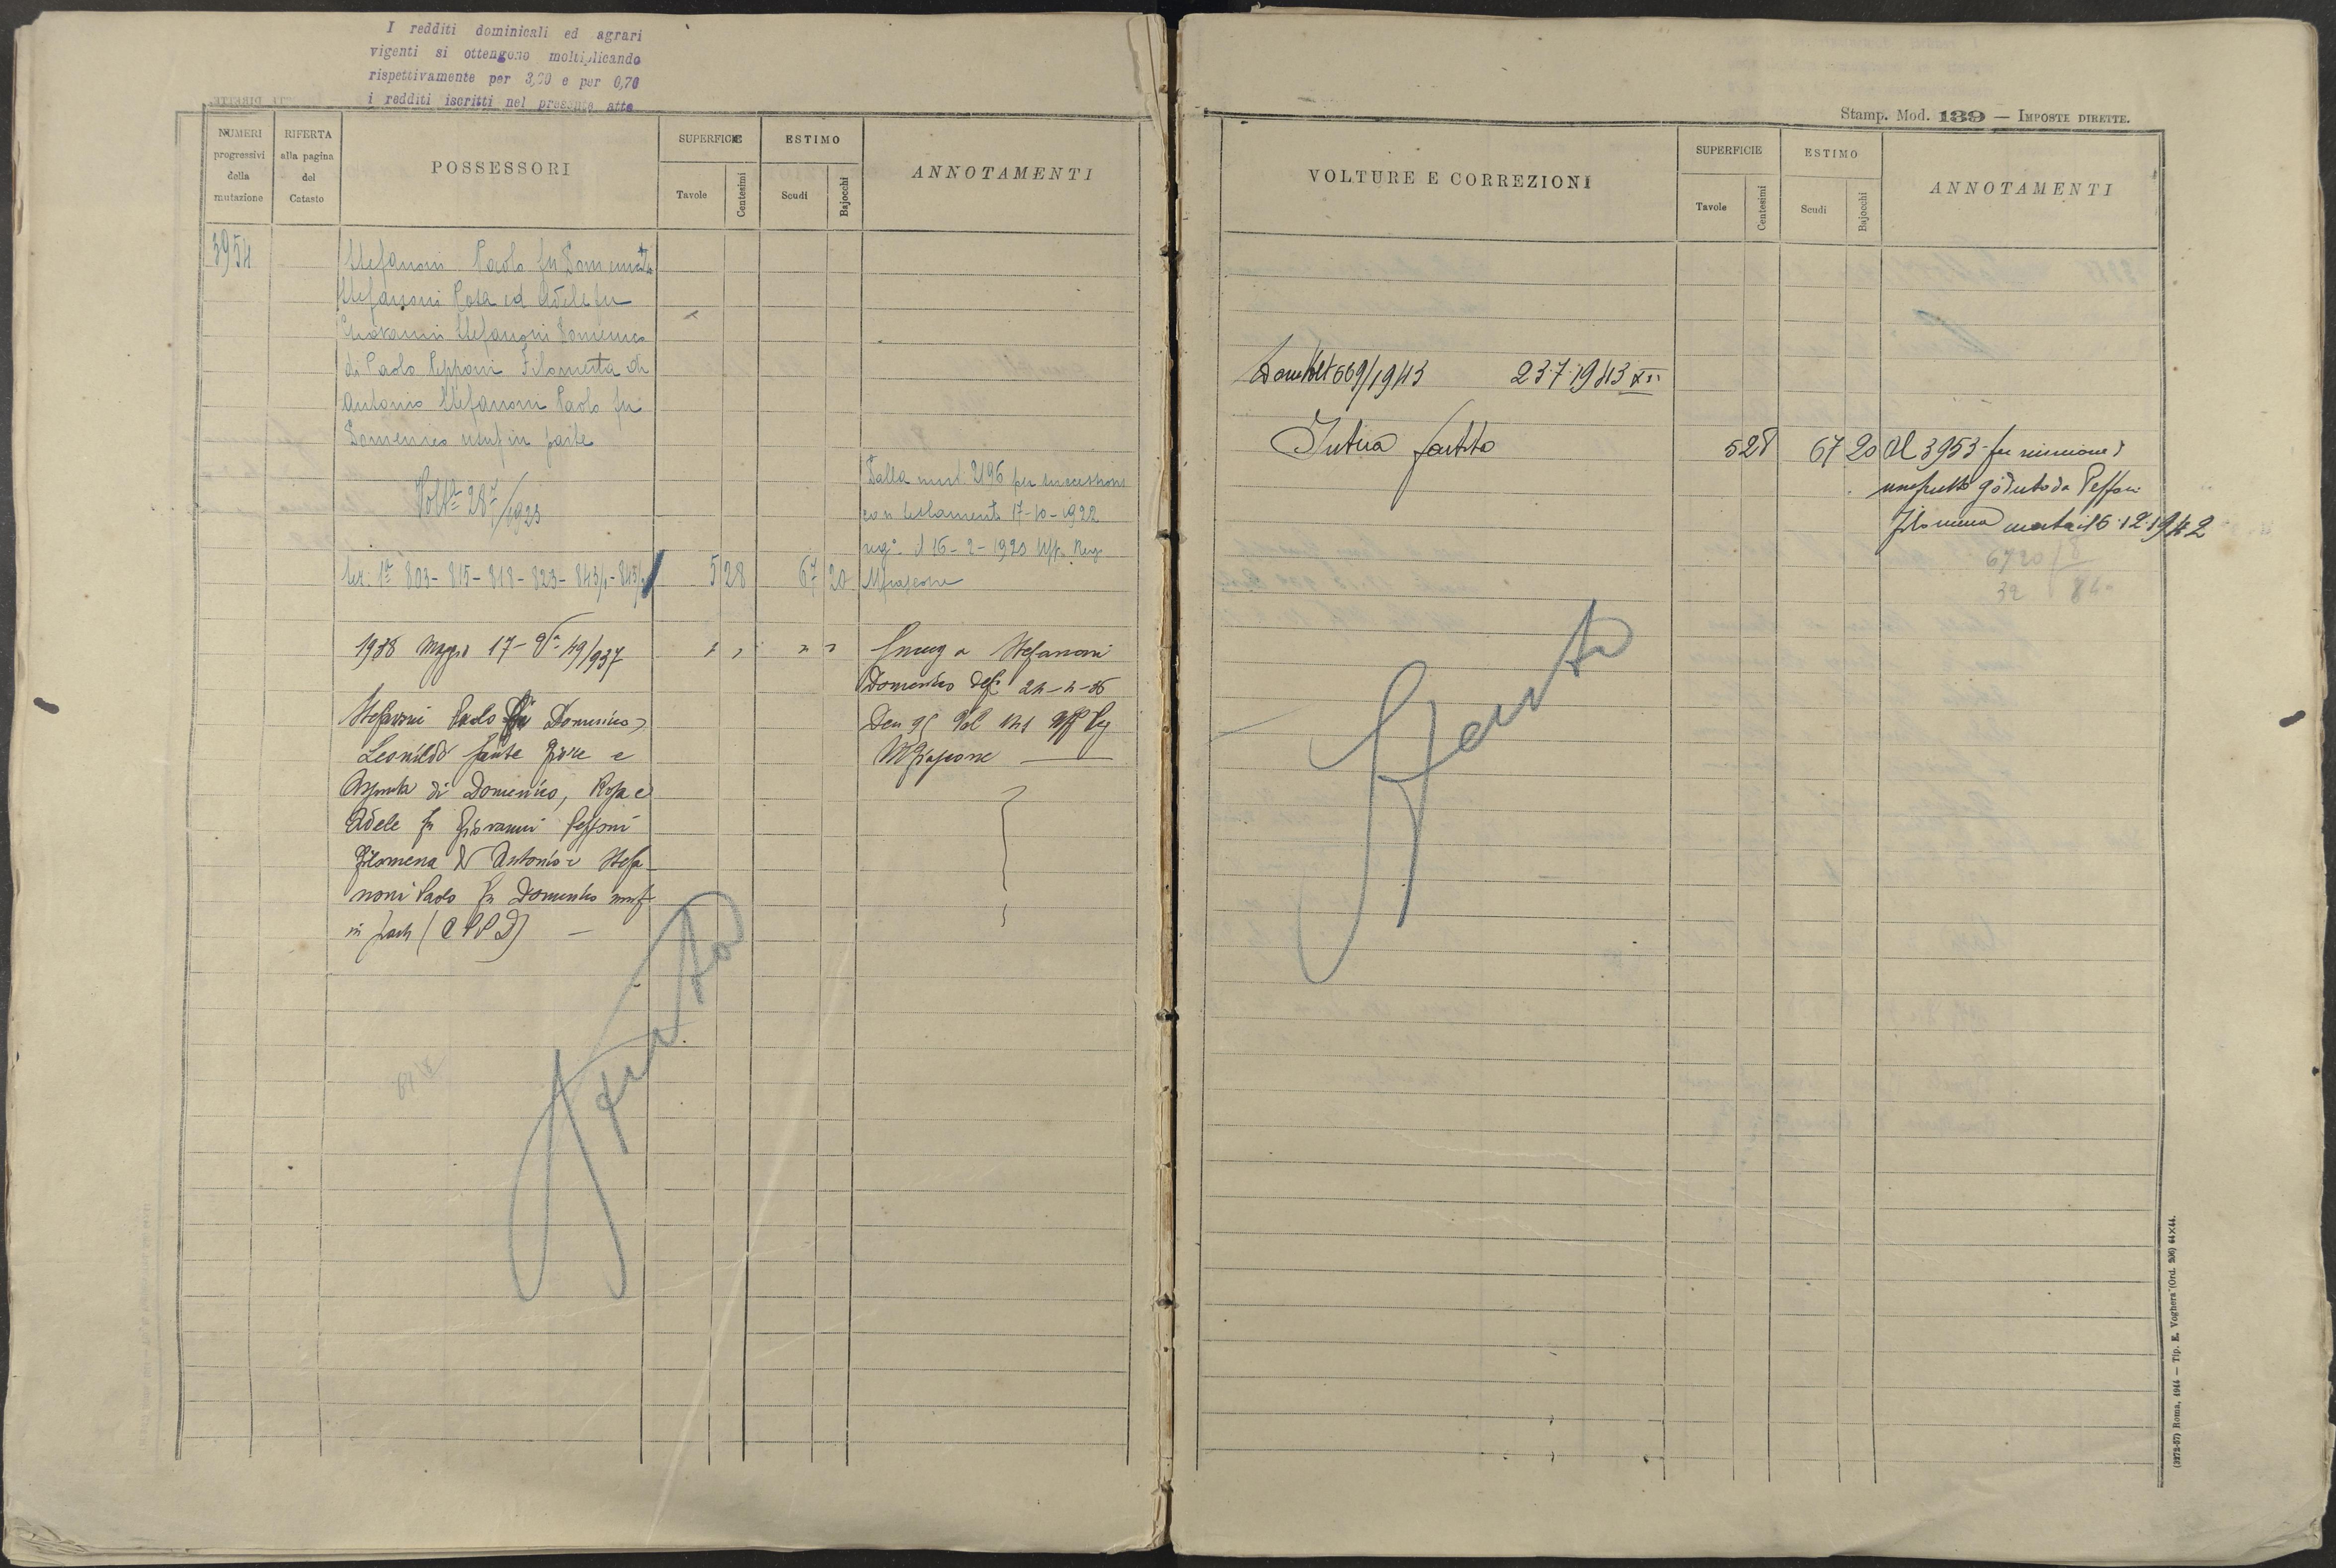 I redditi dominicali ed agrari
vigenti si ottengono moltiplicando
rispettivamente per 3,20 e per 0,70
i redditi iscritti nel presente atto
NUMERI
progressivi
della
mutazione
RIFERTA
alla pagina
del
Catasto
POSSESSORI
SUPERFICIE
Tavole
Centesimi
ESTIMO
Scudi
Bajocchi
ANNOTAMENTI
3954
Stefanoni Paolo fu Domenico
Stefanoni Rosa ed Adele fu
Giovanni Stefanoni Domenico
di Paolo Pepponi Filomena di
Antonio Stefanoni Paolo fu
Domenico usuf in parte
Dalla mut 2196 per successione
con testamento 17-10-1922
Volt 287/1923
reg° il 16-2-1923 Uff. Reg.
Sez: 1ª 803-815-818-823-843/1-843/2 5 28 67 20 Mfiascone
1938 Maggio 17- Vª 49/937
Stefanoni
Domenico def.
Stefanoni Paolo fu Domenico,
Leonildo Sante Fiore e
Assunta di Domenico, Rosa e
Adele fu Giovanni Pepponi
Filomena di Antonio e Stefa
noni Paolo fu Domenico usuf
in parte
Den 95 Vol 141 Uff Reg
Mfiascone
Spento
Stamp. Mod. 139 — IMPOSTE DIRETTE.
VOLTURE E CORREZIONI
SUPERFICIE
Tavole
Centesimi
ESTIMO
Scudi
Bajocchi
ANNOTAMENTI
Volt 669/1943 23.7.1943
Intera partita 5 28 67 20 Al 3953 per riunione d
usufrutto goduto da Peppon
Filomena morta il 6.12.1942
6720 8
32 84
Spento
(3272-57) Roma, 1944 — Tip. E. Voghera (Ord. 206) 64×44.